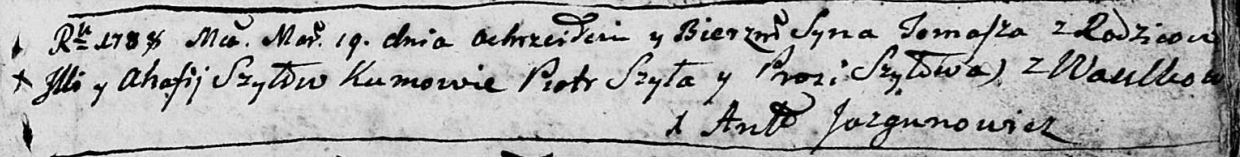 Rku 1788 Mca. Mar. 19. dnia Ochrzciłem y Bierzm. Syna Tomasza z Rodzicow
Illi y Ahafij Szyłow Kumowie Piotr Szyła y Prozi Szyłowa) z Wasilkow
X Ant Jozgunowicz